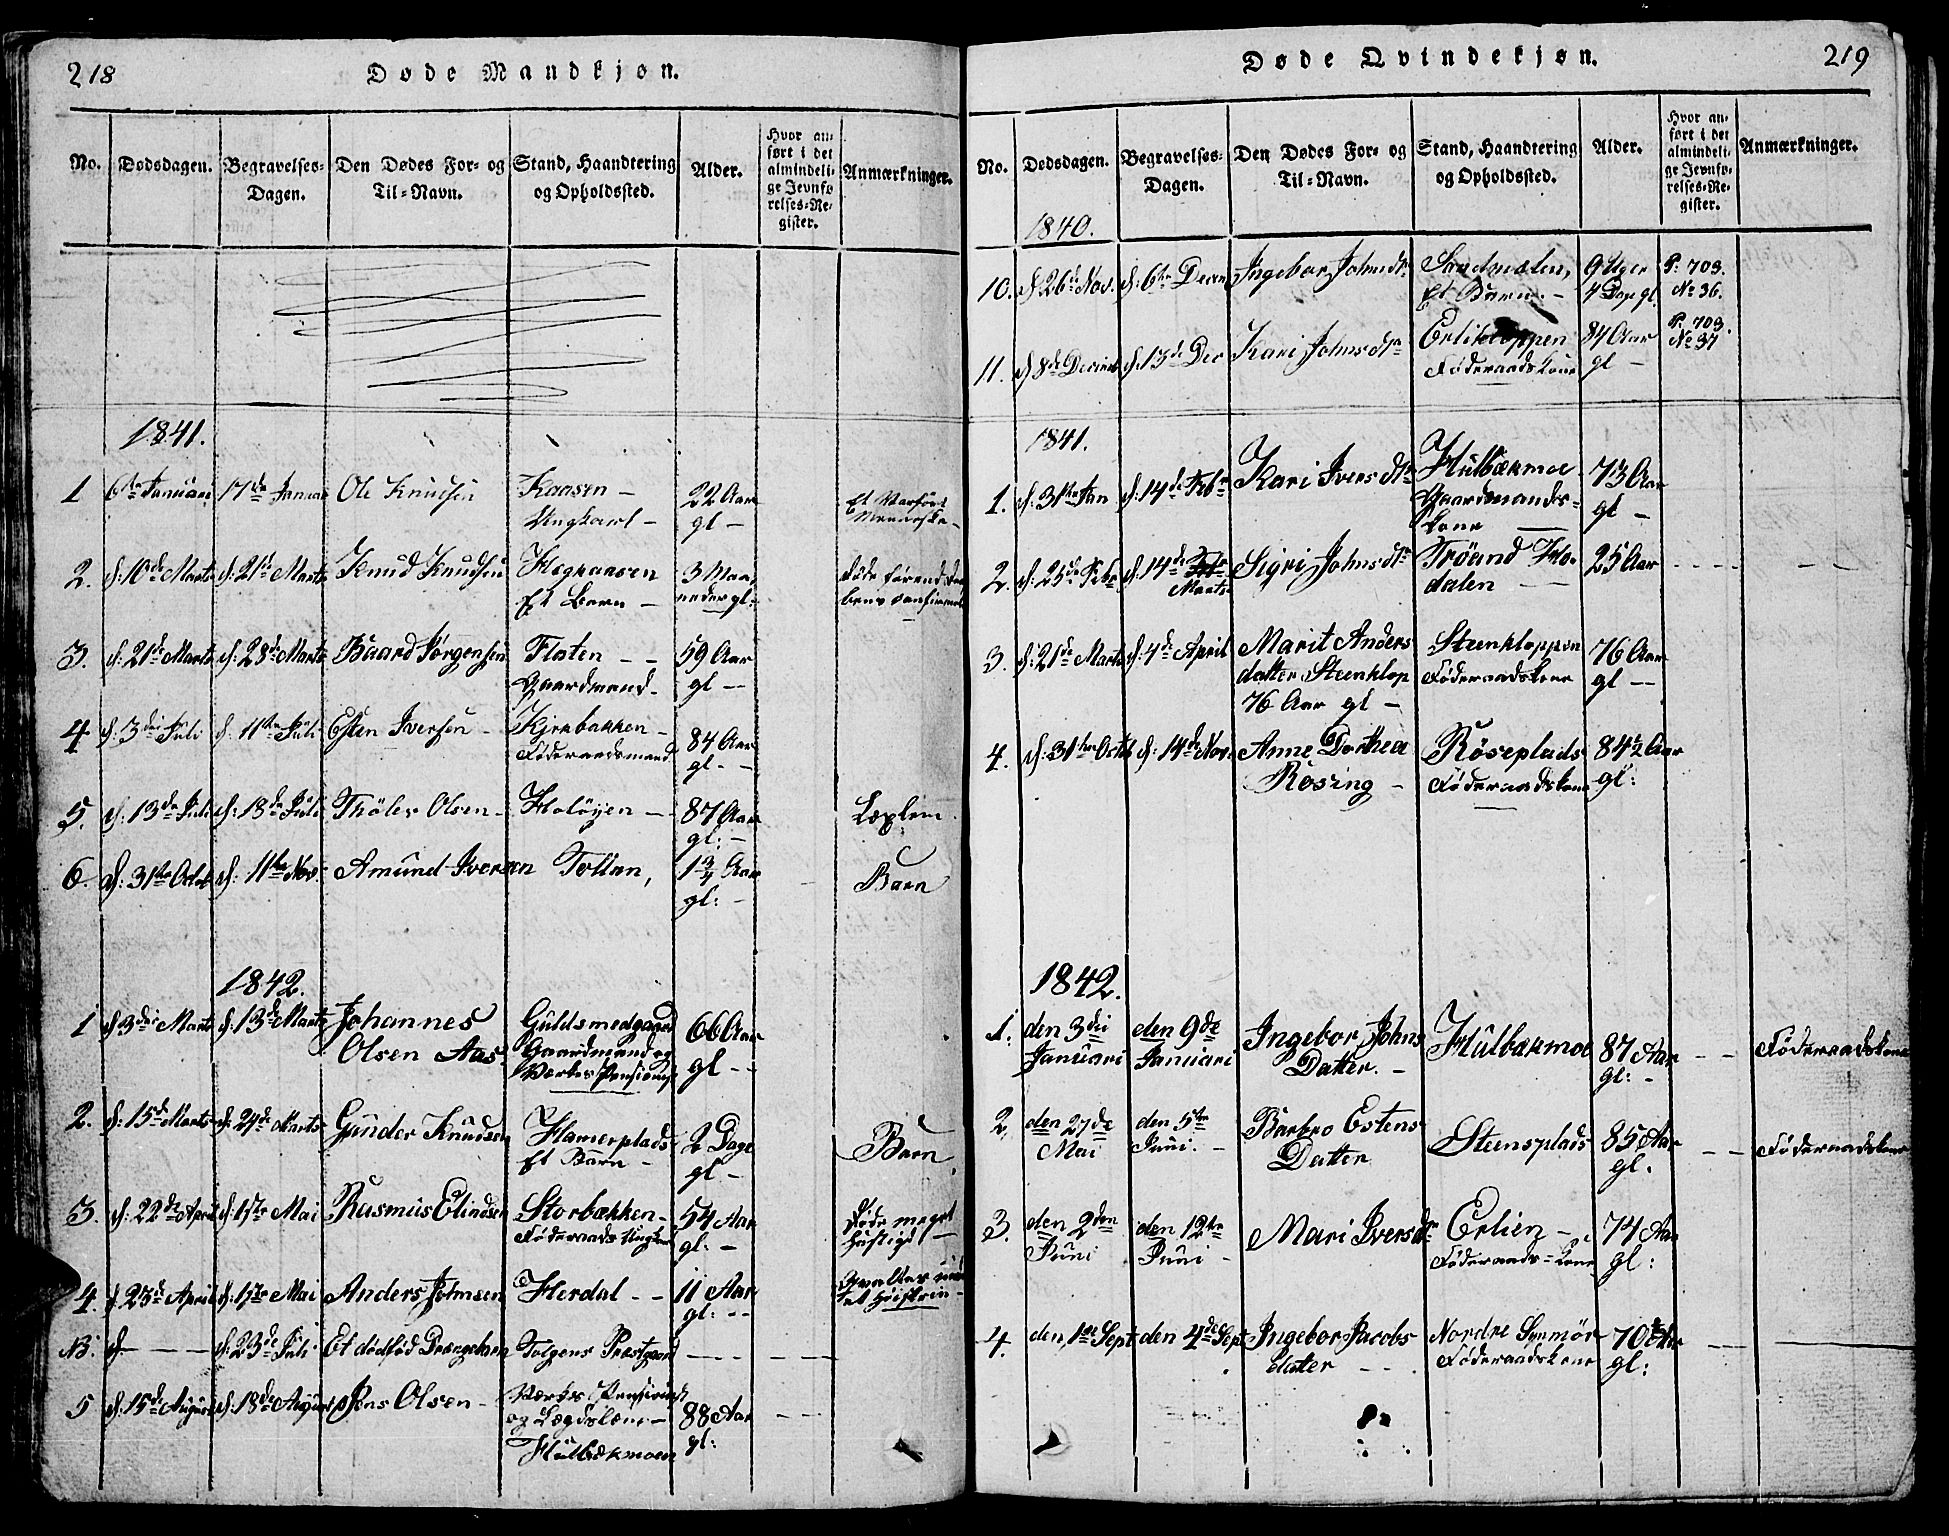 218
Døde Mandkjøn.
No. Dødsdagen. Begravelses-Dagen. Den Dødes For- og Til-Navn. Stand, Haandtering og Opholdssted. Alder. Hvor anført i det almindelige Jevnførelses-Register. Anmærkninger.
1841.
1 6te Januari 17de Januar Ole Knudsen Kaasen – 22 Aar
Ungkarl – gl –
2. d: 10de Marts d: 21de Marts Knud Knudsen 3 Maa-
Et Barn – neder gl:
3. d: 21de Marts d: 28de Marts Baard Jørgensen Floten – – 59 Aar
Gaardmand – gl –
4 d: 3die Juli d: 11te Juli Esten Iversen – Kjrebakken – 84 Aar
Føderaadsmand gl. –
5. d: 13de Juli d: 18de Juli Thøler Olsen – Holøyen – 87 Aar Læxlem.
gl: –
6. d: 31te Octob d: 11te Nov: Amund Iversen Tollan, 1 3/4 Aar Barn
gl: –
1842.
1 d 3die Marts d: 13de Marts Johannes Guldsmedgaard 66 Aar
Olsen Aas – Gaardmand og gl – –
Værkes Pensionist
2. d: 15de Marts d: 24de Marts Gunder Knudsen Hamerplads 2 Dage Barn
Et Barn – gl –
3. d: 22de April d: 1ste Mai Rasmus Elindsen Storbækken – 54 Aar Døde meget
Føderaads Ungkarl gl: – hustigt –
4. d. 23de April d: 17de Mai Anders Johnsen Herdal – – 11 Aar
gl: – –
NB. d – – – d: 23de Juli Et dødfød Drængebarn Tolgens Præstgaard – – –
5 d: 15de August d: 18de August Jens Olsen – Værkes Pensionist
og Lægdslem – 88 Aar
Hulbækmoen gl:
Døde Qvindekjøn.
219
No. Dødsdagen. Begravelses-Dagen. Den Dødes For- og Til-Navn. Stand, Haandtering og Opholdssted. Alder. Hvor anført i det almindelige Jevnførelses-Register. Anmærkninger.
1840.
10. d 26de Nov. d: 6te Decem Ingebor Johnsdtr Sandmælen, 9 Uger P: 703.
Et Barn. – 4 Dage gl. No 36.
11. d 8de Decemb d. 13de Dec Kari Johnsdtr Erlikloppen 84 Aar P. 703.
Føderaadskone gl – No 37
1841.
1. d: 31te Jan d: 14de Febr Kari Iversdtr Hulbækmoe 73 Aar
Gaardmands- gl –
kone
2. d: 25de Febr d: 14de Febr Sigri Johnsdtr Trøand Ho- 25 Aar – – – –
Marts dalen –
3. d: 21de Marts d: 4de April Marit Anders Steenkloppen 76 Aar
datter Steenklop Føderaadskone gl –
76 Aar gl –
4. d: 31te Octob d: 14de Nov. Anne Dorthea Røseplads 84½ Aar
Rosing – Føderaadskone gl:
1842.
1. den 3die den 9de Ingebor Johns Hulbækmoe 87 Aar – – Føderaadskone
Januari Januari Datter. – gl: –
2. den 27de den 5te Barbro Estens Steensplads 85 Aar – – Føderaadskone
Mai Juni. – Datter gl.
3. den 2den den 12te Mari Iversdtr Erlien – 74 Aar
Juni Juni – Føderaads-Kone gl:
4. den 1ste Sept den 4de Sept Ingebor Jacobs Nordre Synmør 70½ Aar – –
datter – – Føderaadskone gl: